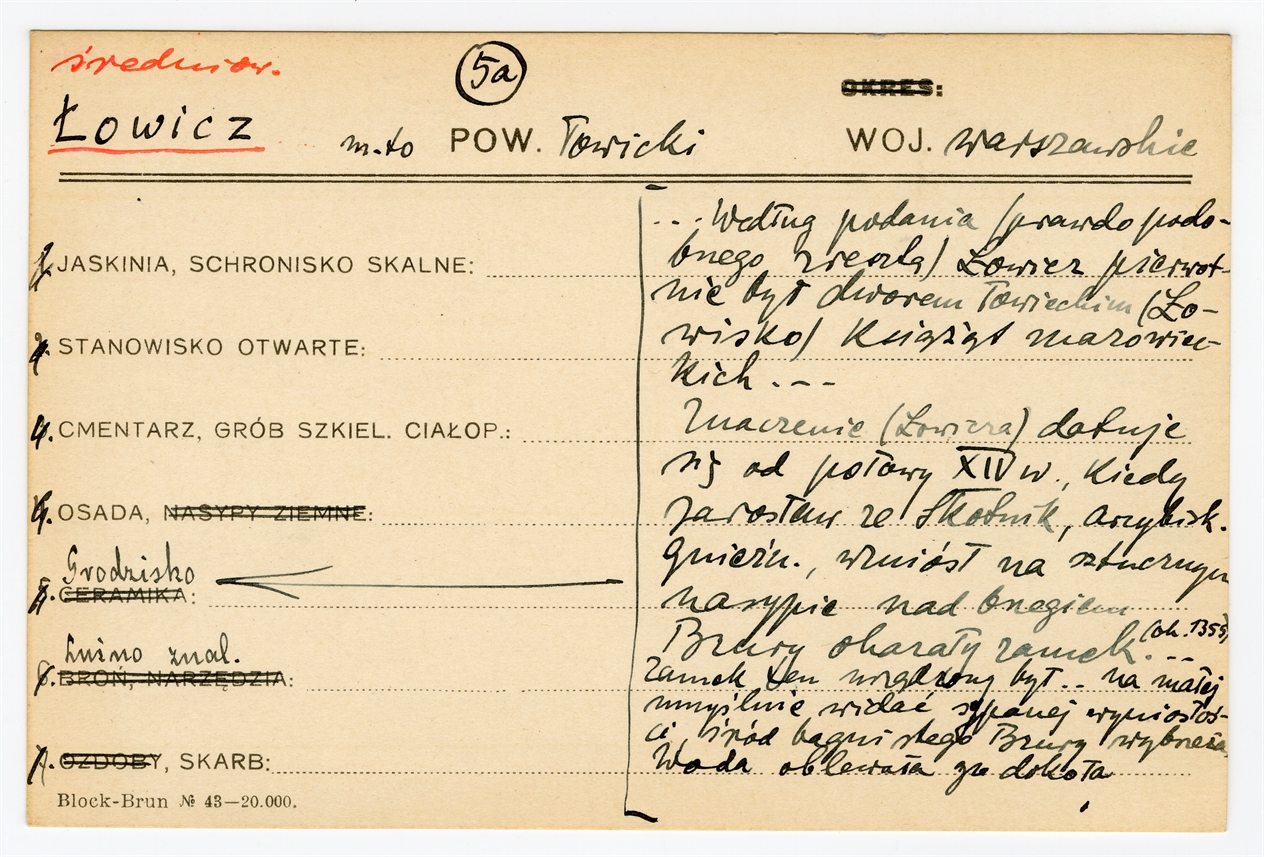 średniow.
5a
OKRES:
Łowicz m-to POW. Łowicki WOJ. warszawskie
1. JASKINIA, SCHRONISKO SKALNE:
2. STANOWISKO OTWARTE:
CMENTARZ, GRÓB SZKIEL. CIAŁOP.:
OSADA, NASYPY ZIEMNE:
Grodzisko
CERAMIKA:
Luźno znal.
BROŃ, NARZĘDZIA:
OZDOBY, SKARB:
Block-Brun № 43—20.000.
... Według podania (prawdopodo-
bnego zresztą) Łowicz pierwot-
nie był dworem łowieckim (Ło-
wisko) Książąt mazowiec-
kich . - -
Znaczenie (Łowicza) datuje
się od połowy XIV w., kiedy
Jarosław ze Skotnik, arcybisk.
gnieźn., wzniósł na sztucznym
nasypie nad brzegiem
Bzury okazały zamek. (ok. 1355) - -
zamek ten urządzony był .. na małej
umyślnie widać sypanej wyniosłoś-
ci, śród bagnistego Bzury wybrzeża,
Woda oblewała go dokoła